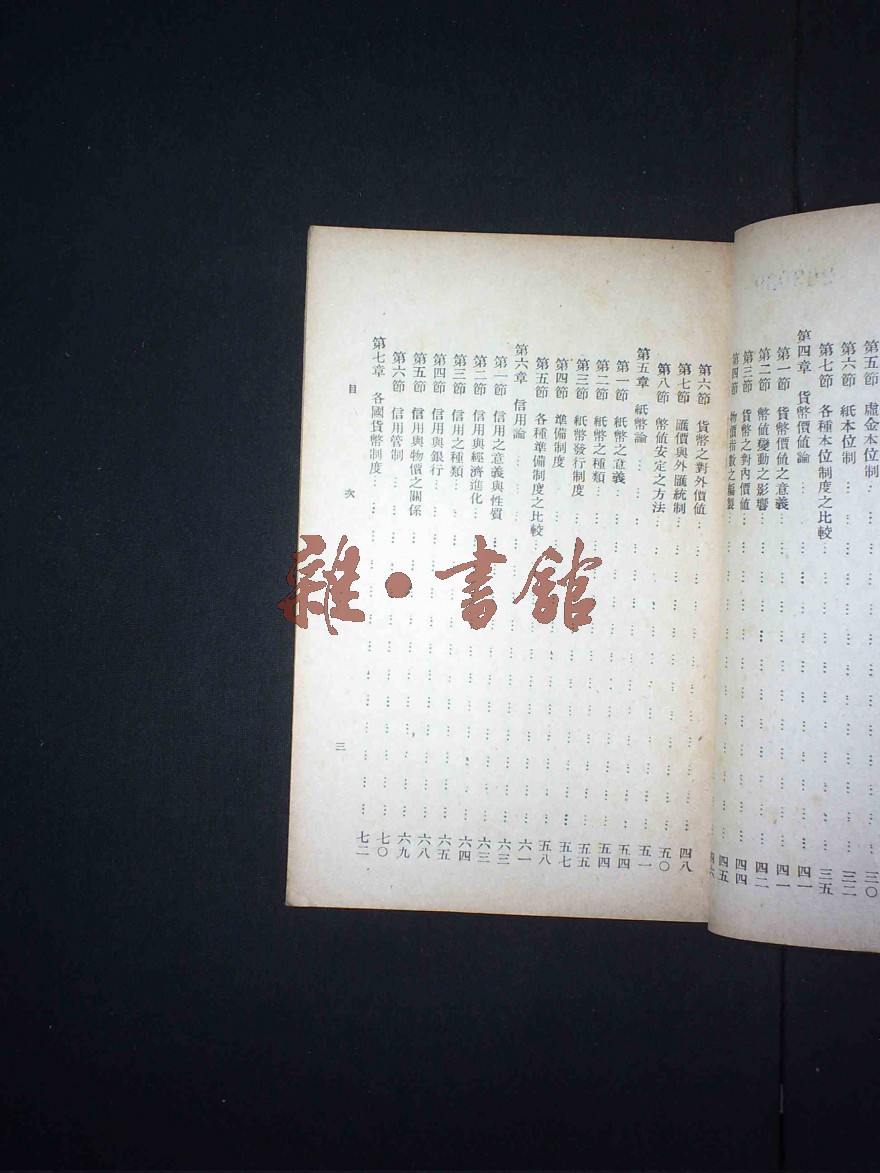 第五節 虛金本位制 … 三〇
第六節 紙本位制 … 三二
第七節 各種本位制度之比較 … 三五
第四章 貨幣價值論 … 四一
第一節 貨幣價值之意義 … 四一
第二節 幣值變動之影響 … 四二
第三節 貨幣之對內價值 … 四四
第四節 物價指數之編製 … 四五
四六
第六節 貨幣之對外價值 … 四八
第七節 匯價與外匯統制 … 五〇
第八節 幣值安定之方法 … 五一
第五章 紙幣論 … 五四
第一節 紙幣之意義 … 五四
第二節 紙幣之種類 … 五五
第三節 紙幣發行制度 … 五七
第四節 準備制度 … 五八
第五節 各種準備制度之比較 … 六一
第六章 信用論 … 六三
第一節 信用之意義與性質 … 六三
第二節 信用與經濟進化 … 六四
第三節 信用之種類 … 六五
第四節 信用與銀行 … 六八
第五節 信用與物價之關係 … 六九
第六節 信用管制 … 七〇
第七章 各國貨幣制度 … 七二
目 次
三
雜·書館